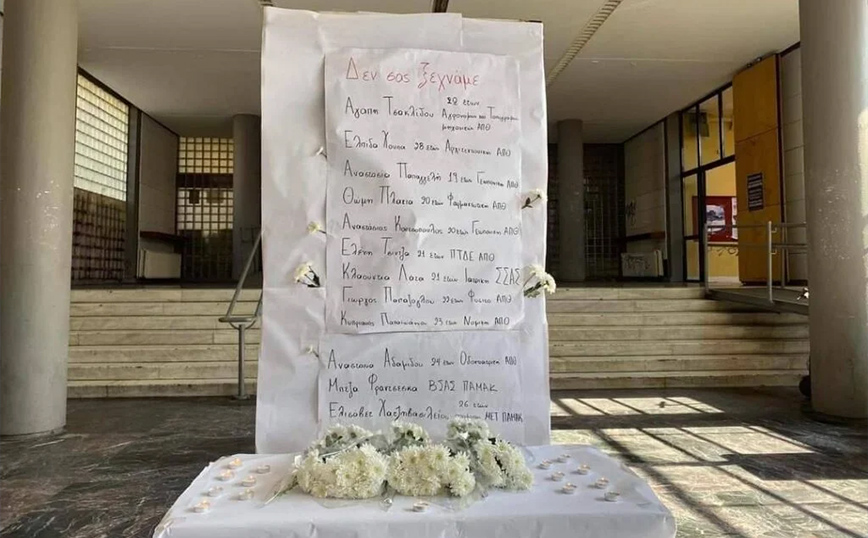 Δεν σας ξεχνάμε
Αγάπη Τσακλίδου 28 ετών
Αγρονόμων και Τοπογράφων
μηχανικών ΑΠΘ
Ελπίδα Χούπα 28 ετών Αρχιτεκτονική ΑΠΘ
Αναστασία Παπαγγελή 19 ετών Γερμανική ΑΠΘ
Θώμη Πλακιά 20 ετών ΑΠΘ
Αναστάσιος Κουτσόπουλος 20 ετών Γεωπονική ΑΠΘ
Ελένη Τσίντζα 21 ετών ΠΤΔΕ ΑΠΘ
Κλαούντια Λάτα 21 ετών Ιατρική ΣΣΑΣ
Γιώργος Παπάζογλου 22 ετών Φυσικό ΑΠΘ
Κυπριανός Παπαϊωάννου 23 ετών Νομική ΑΠΘ
Αναστασία Αδαμίδου 24 ετών Οδοντιατρική ΑΠΘ
Μπέζα Φραντσέσκα ΒΣΑΣ ΠΑΜΑΚ
Ελισάβετ Χατζηβασιλείου 26 ετών ΜΕΤ ΠΑΜΑΚ